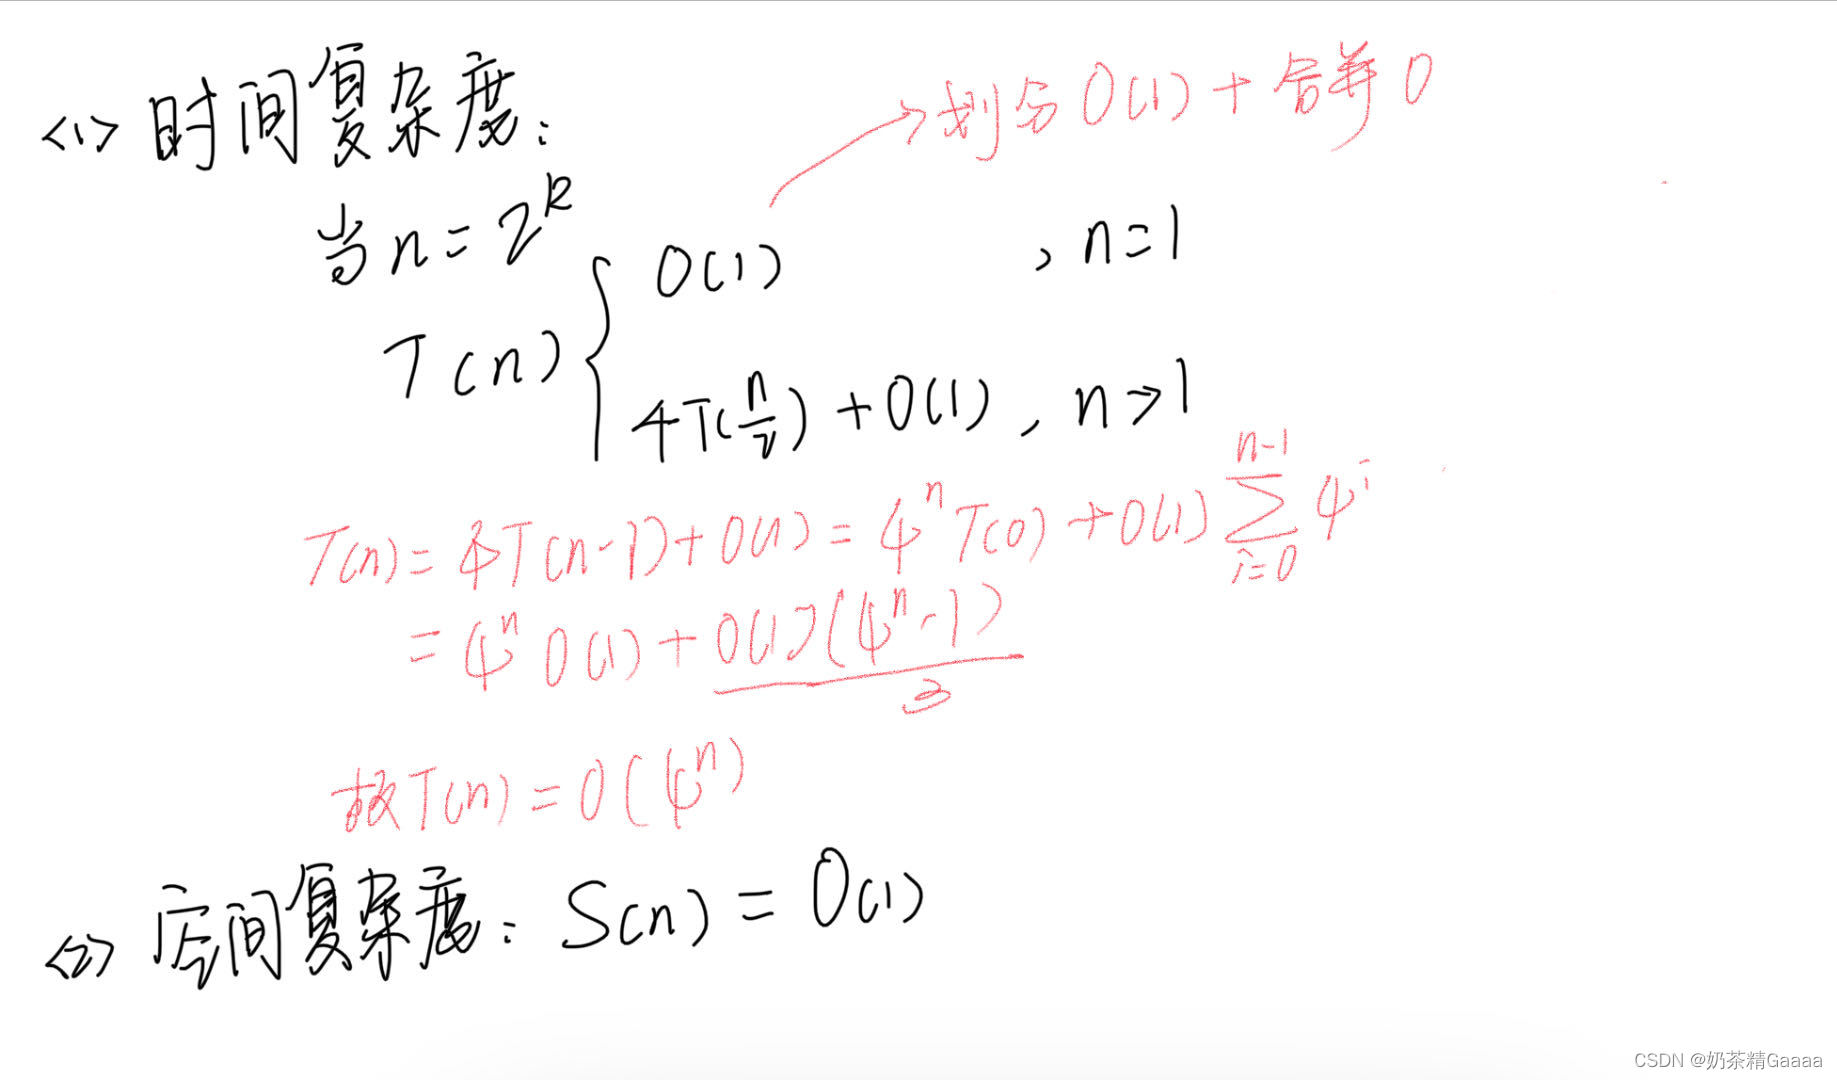 <1> 时间复杂度:
→划分O(1)+合并0
当n=2^k
T(n) { O(1) , n=1
4T(n/2)+O(1), n>1
T(n)=4T(n-1)+O(1)=4^n T(0)+O(1)∑_{i=0}^{n-1} 4^i
=4^n O(1)+O(1)(4^n-1)/3
故T(n)=O(4^n)
<2> 空间复杂度: S(n)=O(1)
CSDN @奶茶精Gaaaa